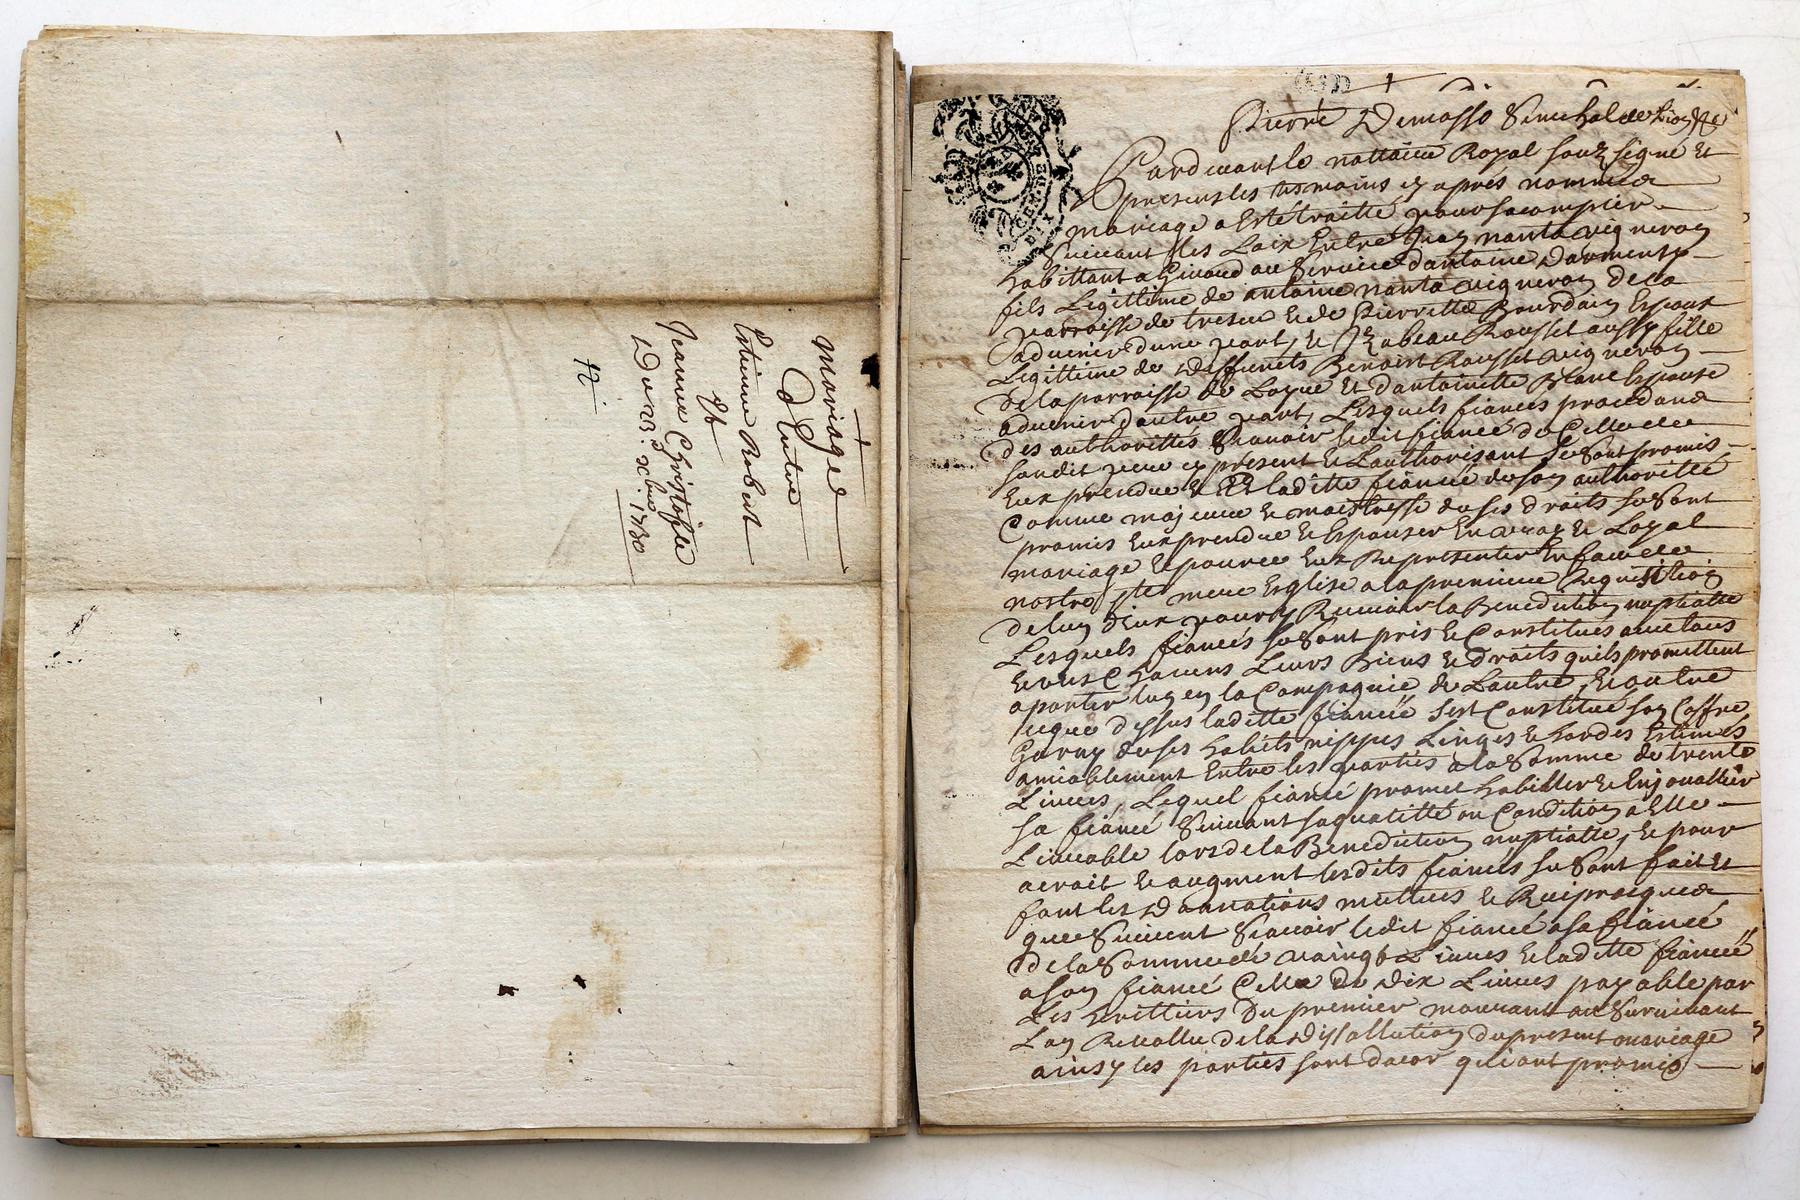 Mariage
D'Entre
Estienne Robert
Et
Jeanne Christophle
Du 23.e xbre 1730
Pierre Demasso Senechal de Lion
Pardevant le nottaire Royal souz signé Et
presens les tesmoins cy apres nommés
mariage a Esté traitté pour sacomplir
Suivant les Loix Entre Jean nanta vigneron
habittant a au Service dantoine
fils Legittime de antoine nanta vigneron de la
parroisse de E de Pierrette Bourdain Espoux
advenir dune part, Et Izabeau Rousset aussy fille
Legittime de deffunts Benoist Rousset vigneron
de la parroisse de Et dantoinette Blanc Espouse
advenir dautre part, Lesquels fiancés procedans
des authorittés Scavoir ledit fiancé de Celle de
sondit pere cy present Et Lauthorisant Se Sont promis
Eux prendre Et laditte fiancéé de son authoritté
Comme majeure Et maistresse de ses droits se Sont
promis Eux prendre Et Espouser En vray Et Loyal
mariage Et pource Eux Representer En face de
nostre Ste mere Esglise a la premiere Requisition
de lun deux pour y Recevoir la Benediction nuptialle
Lesquels fiancés se Sont pris Et Constitués avec tous
Et uns Chacuns Leurs Biens Et droits quils promettent
aporter lun en la Compagnie de Lautre, Et outre
ceque dessus laditte fiancéé sest Constitué son Coffre
Garny de ses habits nippes Linges Et hardes Estimés
amiablement Entre les parties a la Somme de trente
Livres, Lequel fiancé promet habiller Et Enjouallier
sa fiancé Suivant sa quallitté ou Condition a Elle
Liureable lors de la Benediction nuptialle, Et pour
Et augment lesdits fiancés se Sont fait Et
font les Donnations mutues Et Reciproques
que Suivent Scavoir ledit fiancé a sa fiancéé
de la Somme de vaingt Livres Et laditte fiancéé
a son fiancé Celle De dix Livres payable par
Les herittiers Du premier mourant au Survivant
Lan Revollu de la dissollution du present mariage
ainsy les parties sont dacor qui ont promis